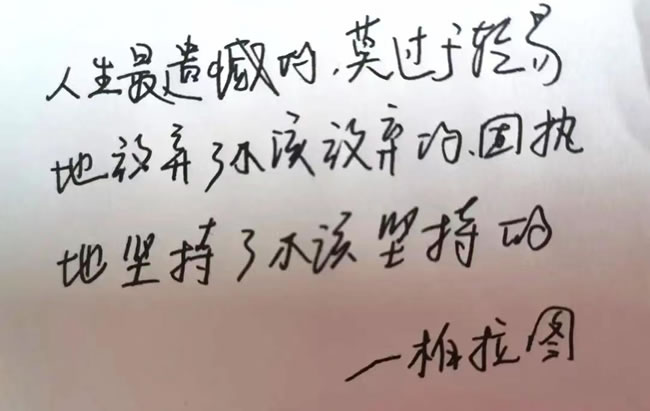 人生最遗憾的,莫过于轻易
地放弃了不该放弃的、固执
地坚持了不该坚持的
—柏拉图